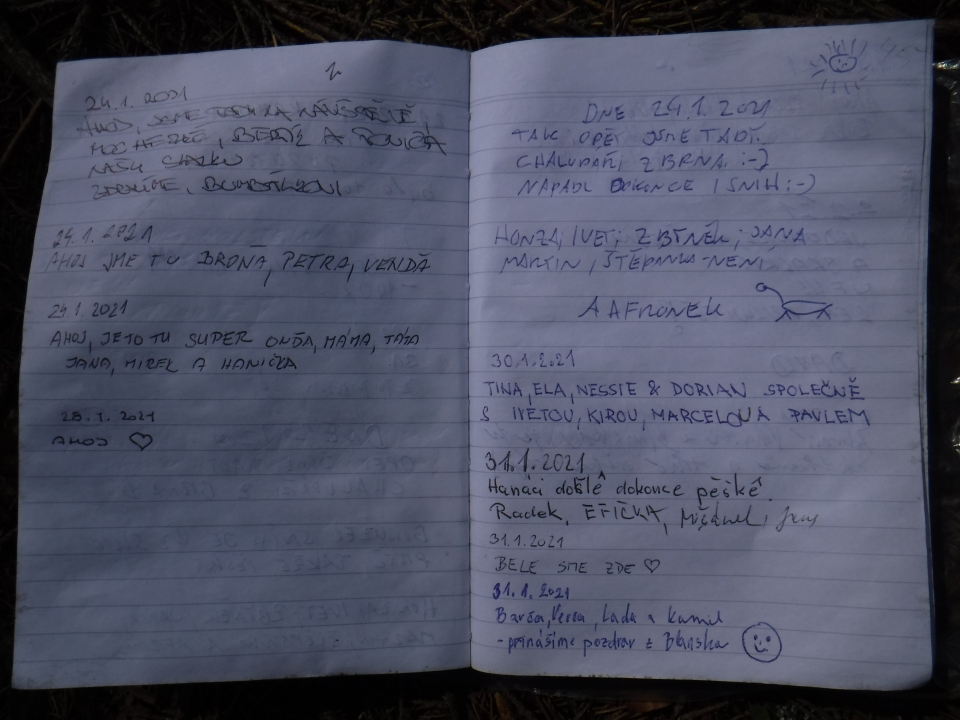 24.1. 2021
AHOJ, JSME TADY NA NÁVŠTĚVĚ
MOC HEZKÉ, A
NAŠU
ZDRAVÍME,
24.1. 2021
AHOJ JME TU BROŇA, PETRA, VENDÁ
24.1. 2021
AHOJ, JE TO TU SUPER ONĎA, MÁMA, TÁTA
JANA, MIREK A HANIČKA
28.1. 2021
AHOJ ♡
DNE 29.1. 2021
TAK OPĚT JSME TADY.
CHALUPÁŘI Z BRNA :-)
NAPADL DOKONCE I SNÍH :-)
HONZA, IVET, ZBYNĚK, JANA
MARTIN, ŠTĚPÁNKA-NENÍ
A AFRONEK
30.1.2021
TINA, ELA, NESSIE & DORIAN SPOLEČNĚ
S IVETOU, KIROU, MARCELOU A PAVLEM
31.1.2021
Hanáci došlê dokonce pěškê.
Radek, EFIČKA,
31.1.2021
BELE SME ZDE ♡
31.1. 2021
Barča, Verča, Lada a Kamil
- přinášíme pozdrav z Blanska